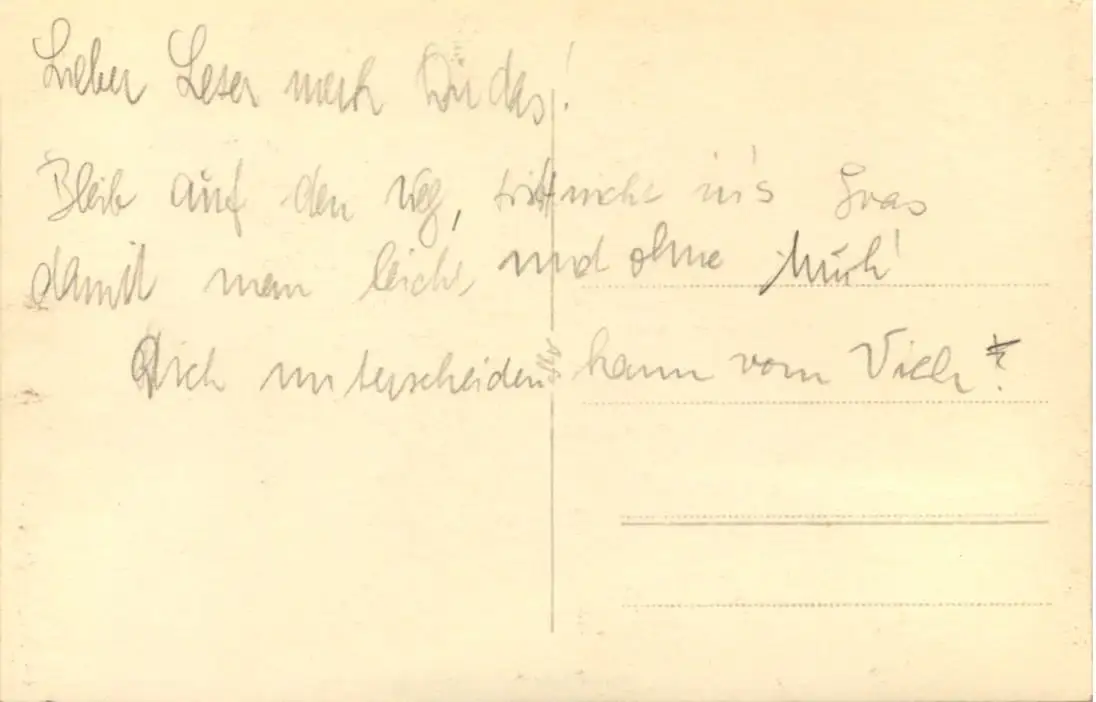 Lieber Leser merk Dir das!
Bleib auf den Weg, tritt nicht in's Gras
damit man leicht, und ohne Müh'
Dich unterscheiden kann vom Vieh!